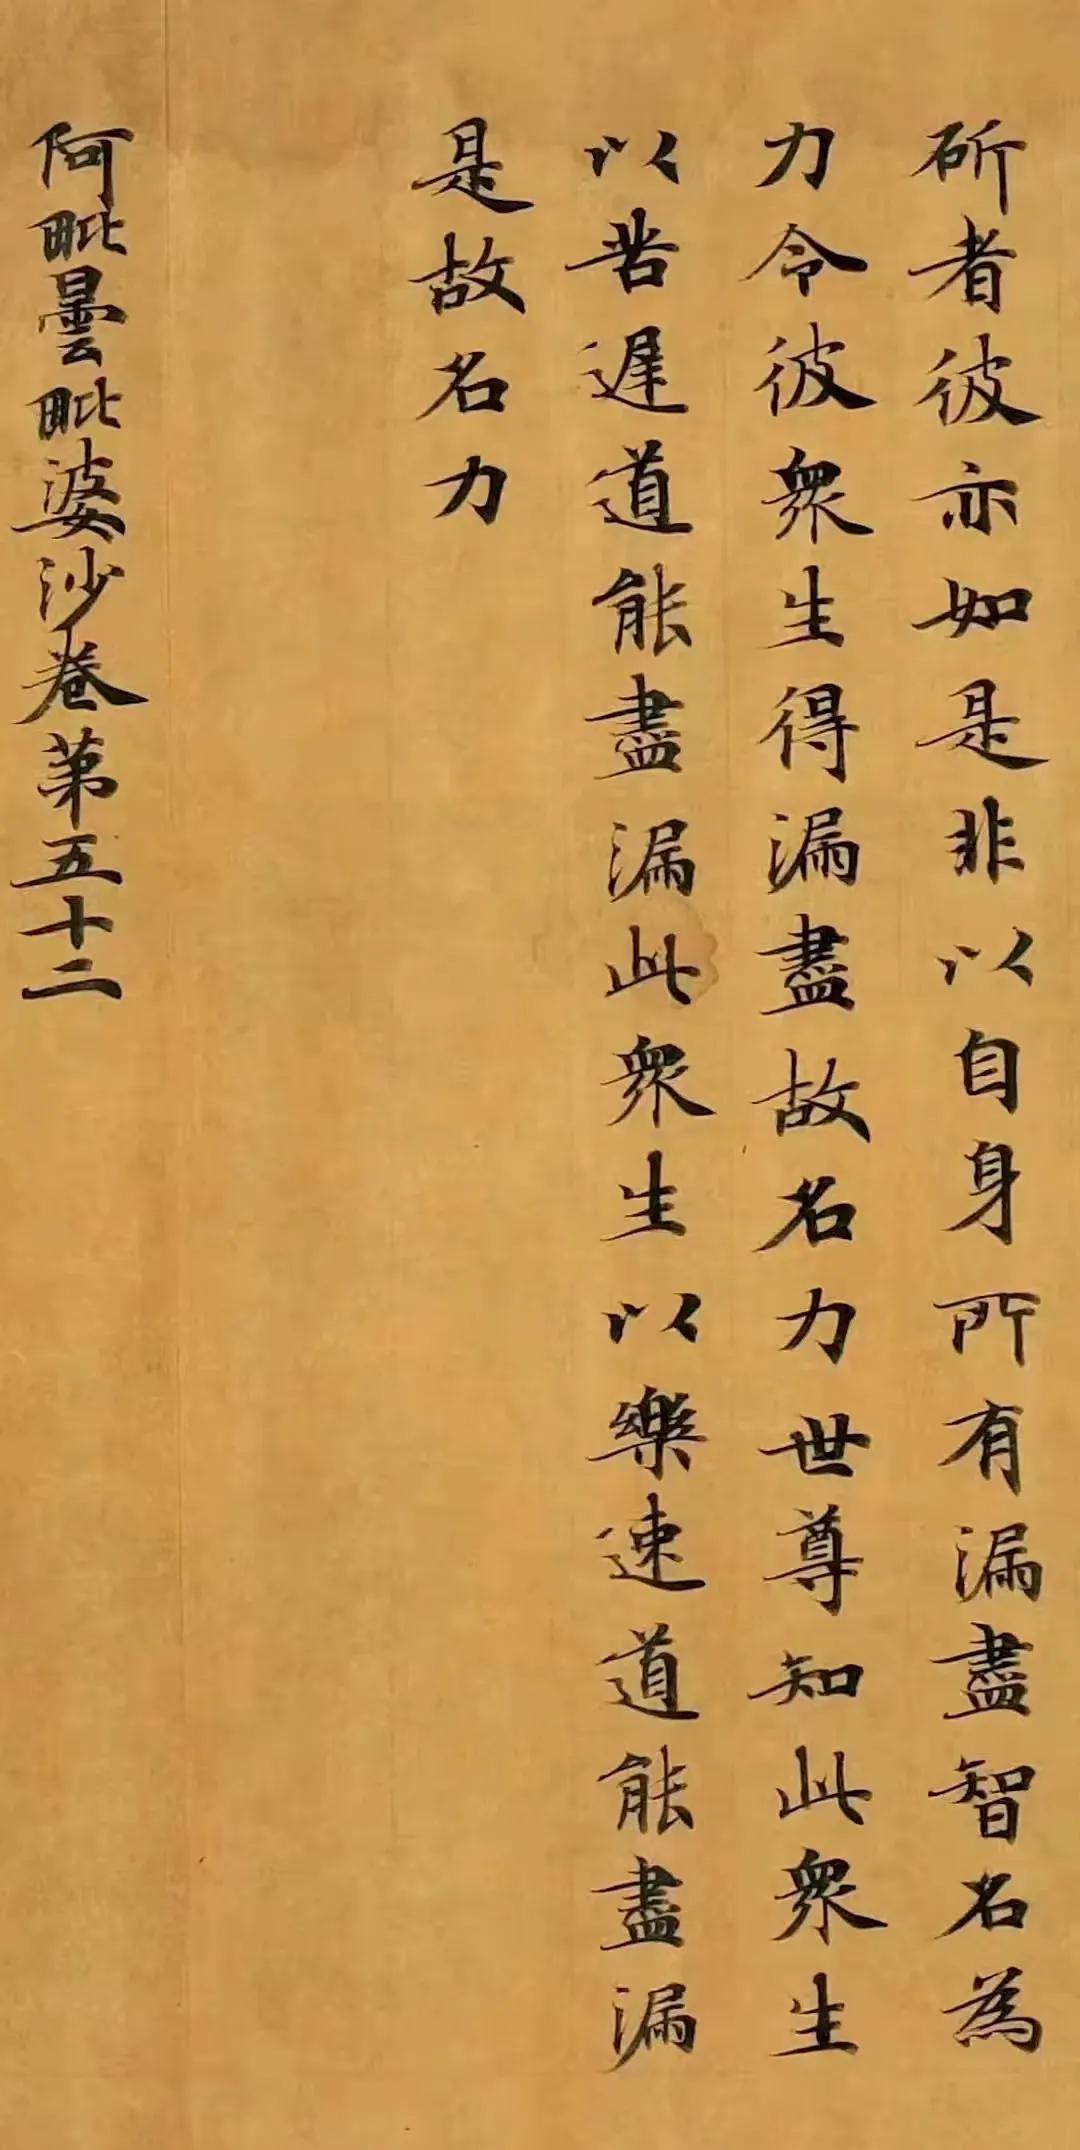 斫者彼亦如是非以自身所有漏盡智名為
力令彼衆生得漏盡故名力世尊知此衆生
以苦遲道能盡漏此衆生以樂速道能盡漏
是故名力
阿毗曇毗婆沙卷第五十二